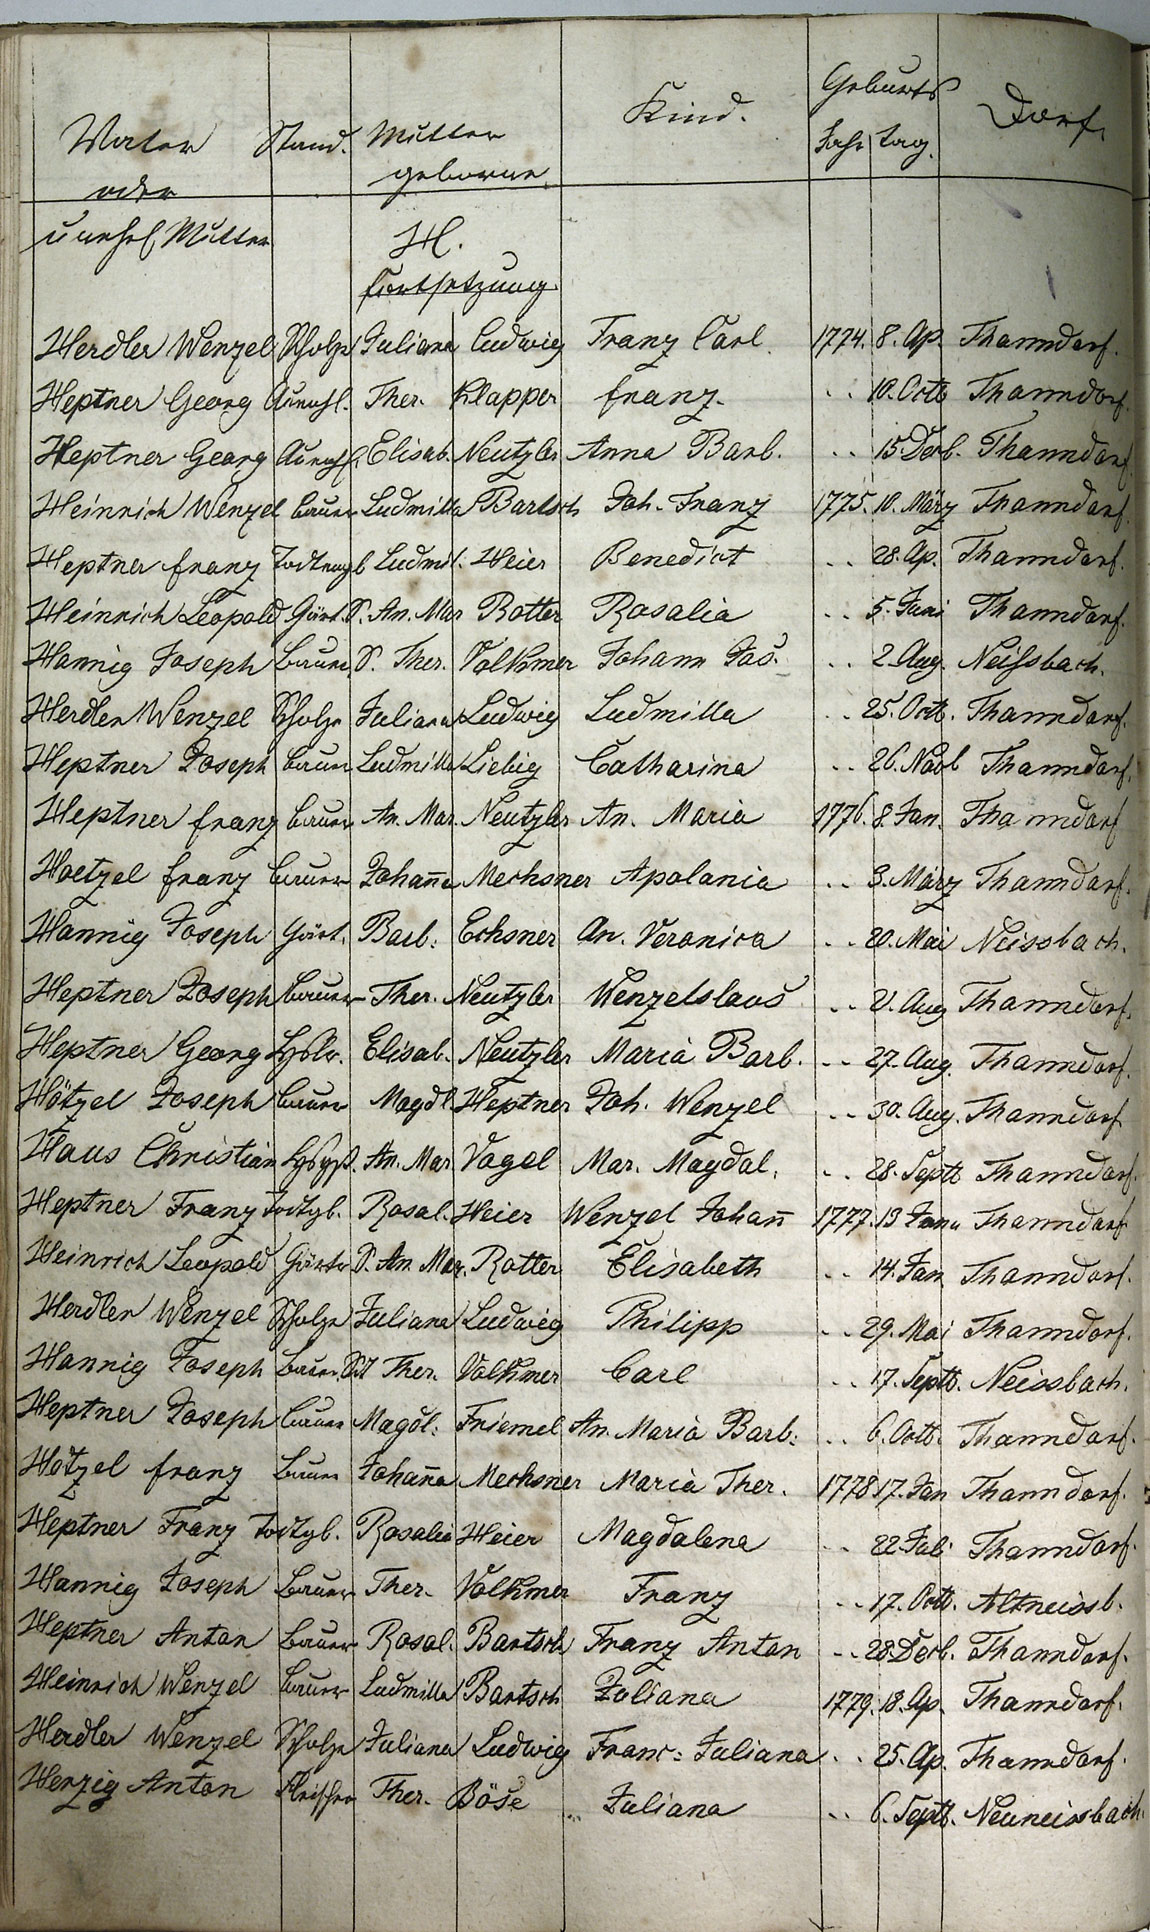 Vater Stand. Mutter Kind. Geburts Dorf.
oder geborne Jahr tag.
unehl. Mutter H.
Fortsetzung
Herdler Wenzel Scholze Juliana Ludwig Franz Carl. 1774. 8. Ap. Thanndorf.
Heptner Georg Auenhl. Ther. Klapper Franz. .. 10. Octb Thanndorf.
Heptner Georg Auenhl. Elisab. Neutzler Anna Barb. .. 15. Decb. Thanndorf.
Heinrich Wenzel Bauer Ludmilla Bartsch Joh. Franz 1775. 10. März Thanndorf.
Heptner Franz Ludmil. Heier Benedict .. 28. Ap. Thanndorf.
Heinrich Leopold Gärt. S. An. Mar Rotter Rosalia .. 5. Juni Thanndorf.
Hannig Joseph Bauer S. Ther. Volkmer Johann Jos. .. 2. Aug. Neissbach.
Herdler Wenzel Scholze Juliana Ludwig Ludmilla .. 25. Octb. Thanndorf.
Heptner Joseph Bauer Ludmilla Liebig Catharina .. 26. Novb Thanndorf.
Heptner Franz Bauer An. Mar. Neutzler An. Maria 1776. 8. Jan. Thanndorf
Hoetzel Franz Bauer Johaña Mechsner Apolonia .. 3. März Thanndorf.
Hannig Joseph Gärt. Barb. Echsner An. Veronica .. 20. Mai Neissbach.
Heptner Joseph Bauer Ther. Neutzler Wenzelslaus .. 21. Aug Thanndorf.
Heptner Georg Elisab. Neutzler Maria Barb. .. 27. Aug. Thanndorf.
Hötzel Joseph Bauer Magdl. Heptner Joh. Wenzel .. 30. Aug. Thanndorf
Haus Christian An. Mar. Vogel Mar. Magdal. .. 28. Septb Thanndorf.
Heptner Franz Rosal. Heier Wenzel Johañ 1777. 13 Janu Thanndorf
Heinrich Leopold Gärtr S. An. Mar. Rotter Elisabeth .. 14. Jan Thanndorf.
Herdler Wenzel Scholze Juliana Ludwig Philipp .. 29. Mai Thanndorf.
Hannig Joseph Bauer. Ther. Volkmer Carl .. 17. Septb. Neissbach.
Heptner Joseph Bauer Magdl: Friemel An. Maria Barb: .. 6. Octb. Thanndorf.
Hötzel Franz Bauer Johaña Mechsner Maria Ther. 1778 17. Jan Thanndorf.
Heptner Franz Rosalia Heier Magdalena .. 22. Juli Thanndorf.
Hannig Joseph Bauer Ther. Volkmer Franz .. 17. Octb. Altneissb.
Heptner Anton Bauer Rosal. Bartsch Franz Anton .. 28. Decb. Thanndorf.
Heinrich Wenzel Bauer Ludmilla Bartsch Juliana 1779. 18. Ap. Thanndorf.
Herdler Wenzel Scholze Juliana Ludwig Franc: Juliana .. 25. Ap. Thanndorf.
Herzig Anton Fleischer Ther. Böse Juliana .. 6. Septb. Neuneissbach.